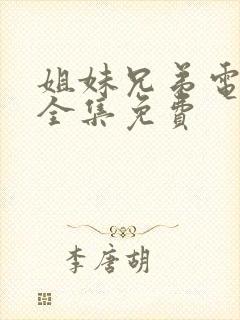 姐妹兄弟電
全集免費
李唐胡